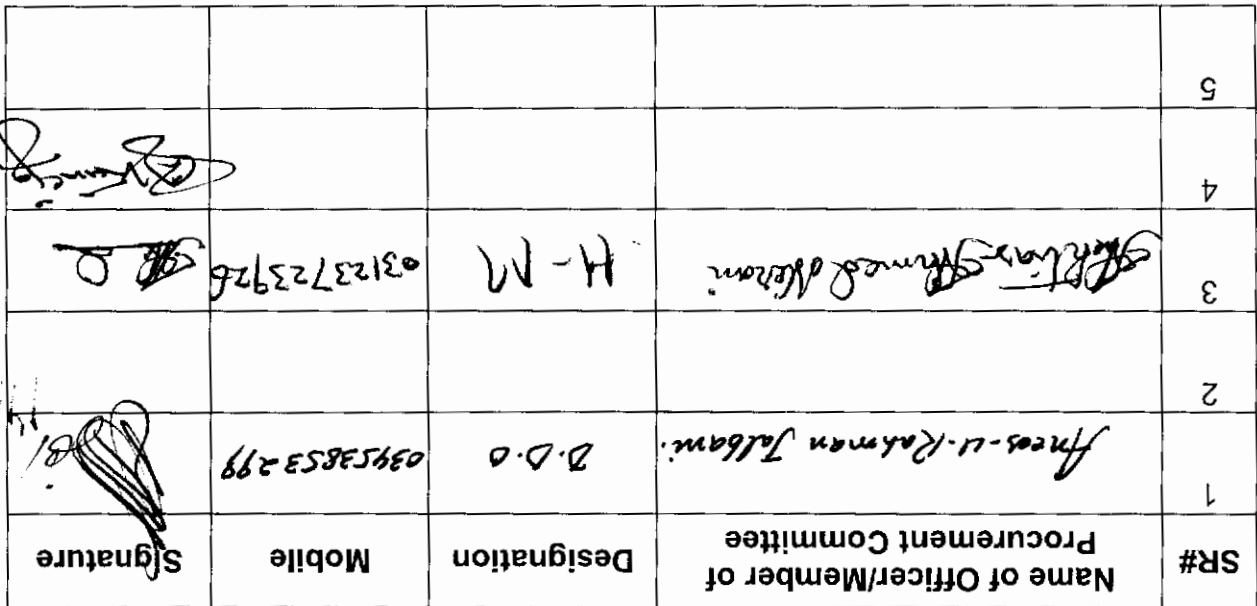 SR# Name of Officer/Member of Procurement Committee Designation Mobile Signature
1 Anees-U-Rahman Jalbani. D.D.O 03453853299
2
3 Ahmed H-M 03123723926
4
5